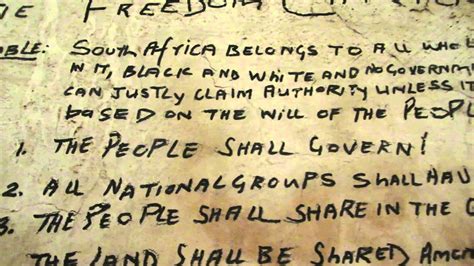 FREEDOM
SOUTH AFRICA BELONGS TO ALL WHO
IN IT, BLACK AND WHITE, AND NO
CAN JUSTLY CLAIM AUTHORITY UNLESS IT
BASED ON THE WILL OF THE
1. THE PEOPLE SHALL GOVERN!
2. ALL NATIONAL GROUPS SHALL
3. THE PEOPLE SHALL SHARE IN THE
THE LAND SHALL BE SHARED